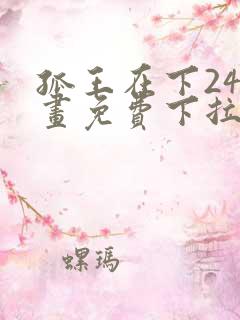 孤王在下24
畫免費下拉
螺瑪